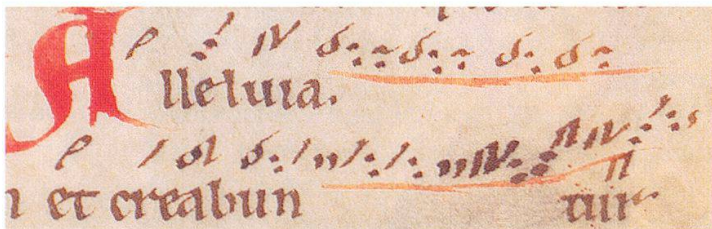 Alleluia.
n et creabun tur